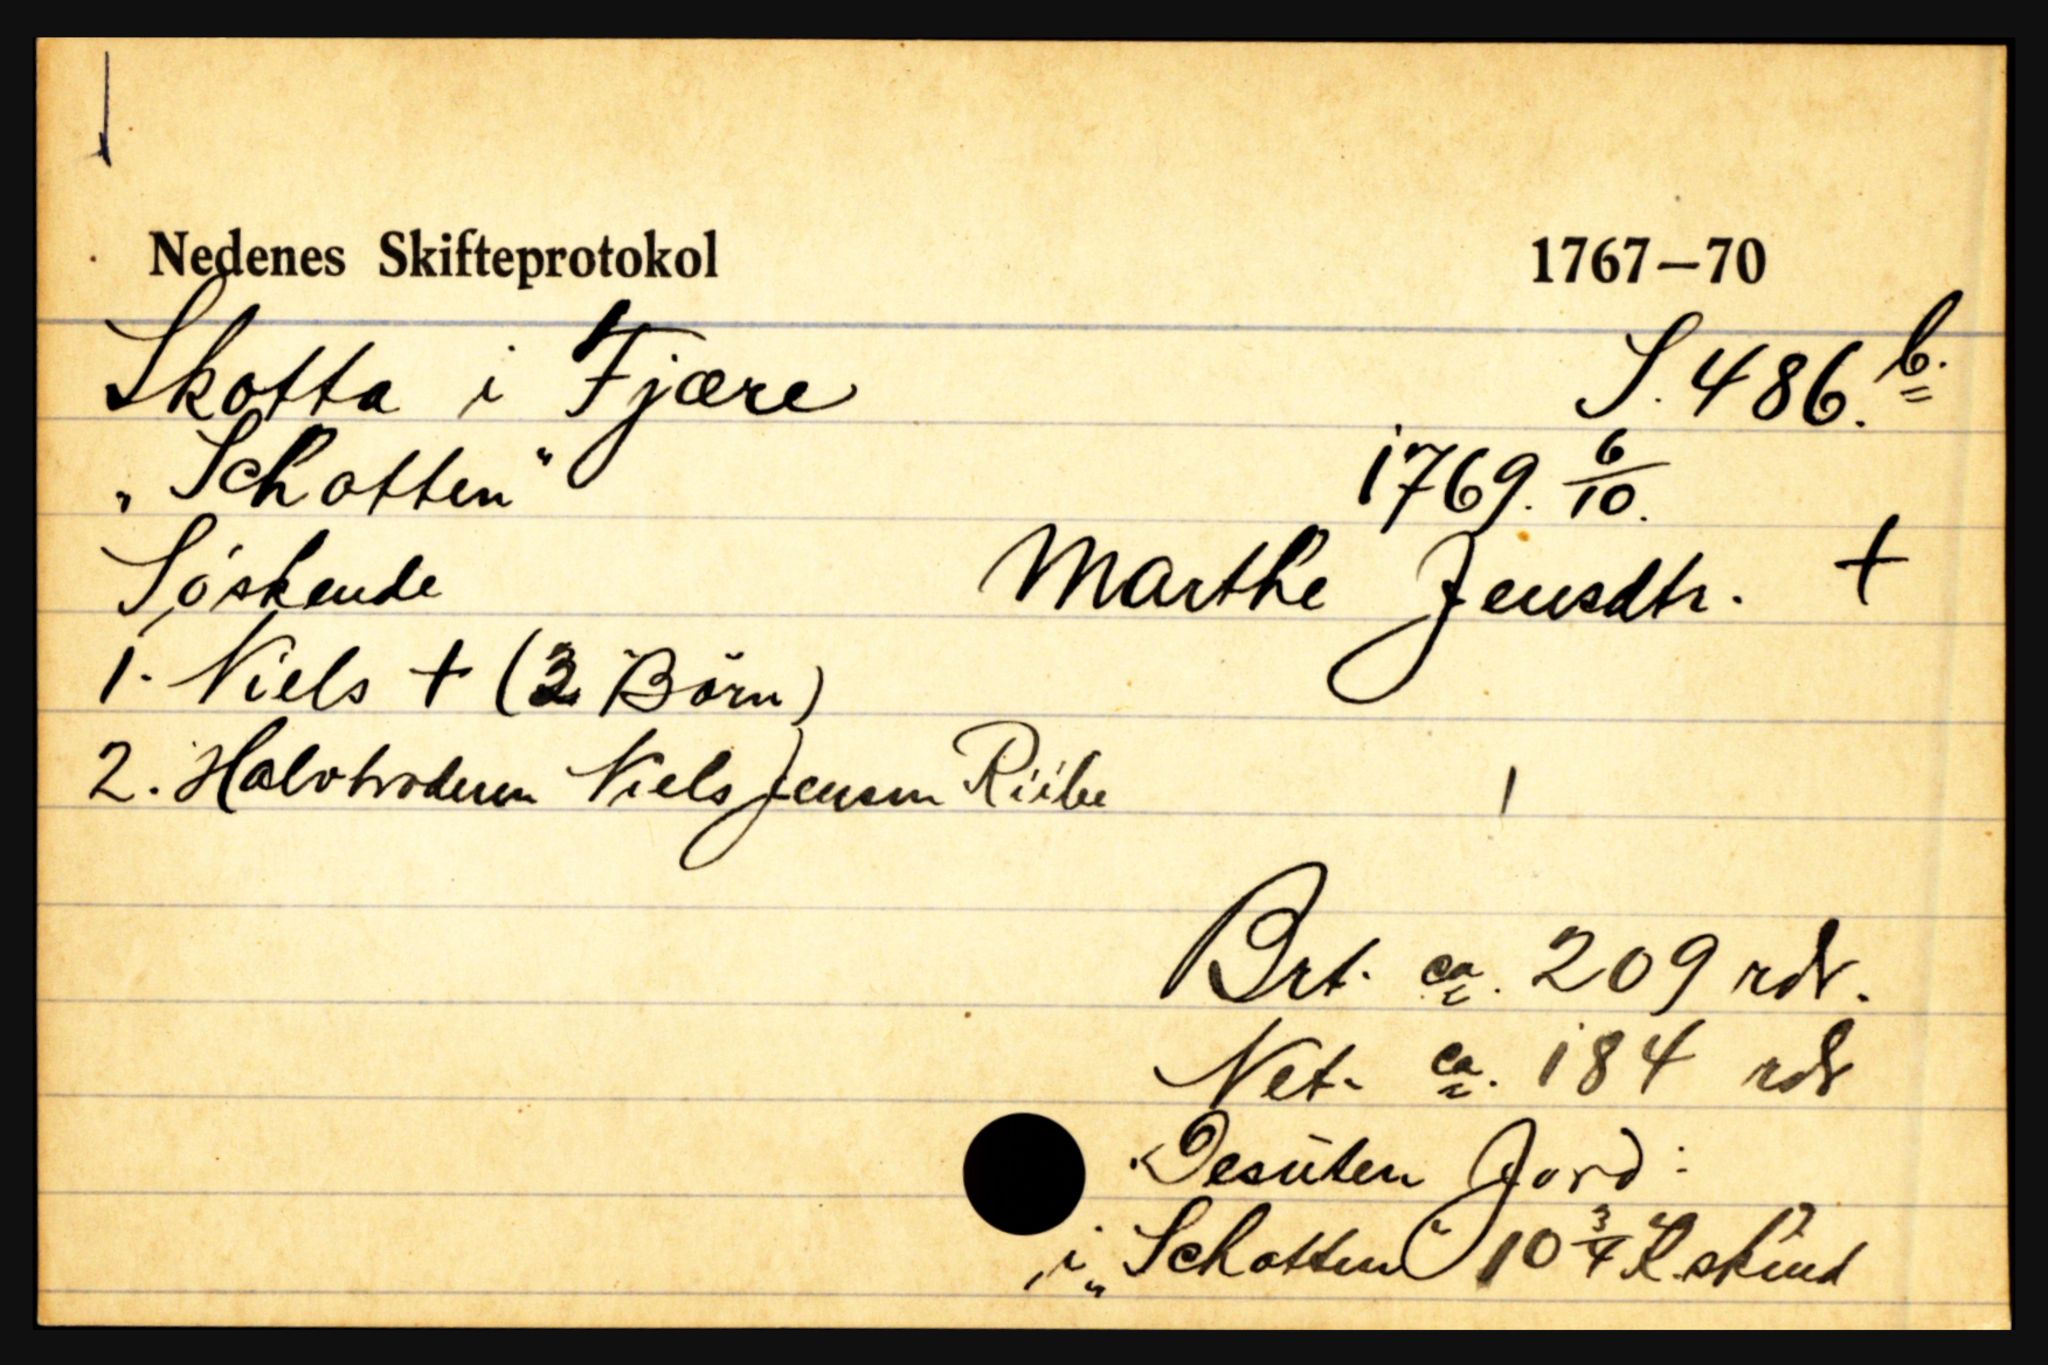 Nedenes Skifteprotokol 1767–70
Skotta i Fjære S. 486. b.
„Schotten“ 1769. 6/10.
Söskende Marthe Jensdtr. +
1. Niels + (3 Börn)
2. Halvbroderen Niels Jensen Riibe
Brt. ca. 209 rdr.
Net. ca. 184 rdr
Desüten Jord:
i „Schotten“ 10 3/4 K.skind